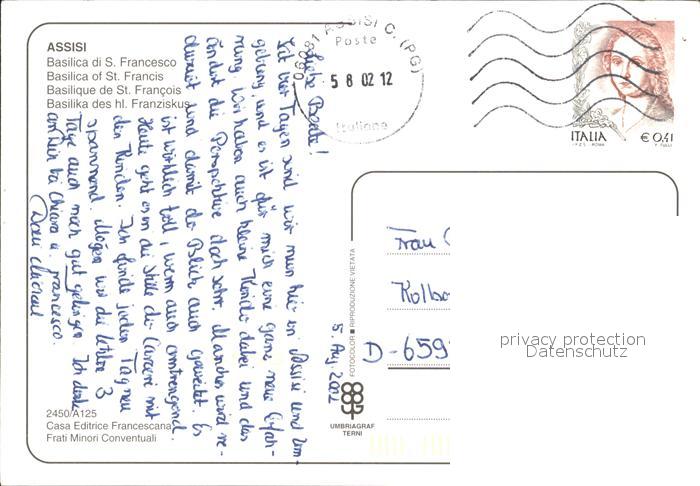 ASSISI
Basilica di S. Francesco
Basilica of St. Francis
Basilique de St. François
Basilika des hl. Franziskus
06081 ASSISI C. (PG)
Poste
5 8 02 12
Italiane
ITALIA
€ 0,41
Liebe Beate!
Seit vier Tagen sind wir nun hier in Assisi und Um-
gebung und es ist für mich eine ganz neue Erfah-
rung. Wir haben auch kleine Kinder dabei und das
ändert die Perspektive doch sehr. Manches wird re-
duziert und damit der Blick auch geweitet. Es
ist wirklich toll, wenn auch anstrengend.
Heute geht es in die Stille der Carceri mit
den Kindern. Ich finde jeden Tag neu
spannend. Mögen wir die letzten 3
Tage auch noch gut gelingen. Ich denke
an Dich bei Chiara u. Francesco.
Dein Michael
5. Aug. 2002
Frau
D-659
FOTOCOLOR ■ RIPRODUZIONE VIETATA
UMBRIAGRAF
TERNI
2450/A125
Casa Editrice Francescana
Frati Minori Conventuali
privacy protection
Datenschutz